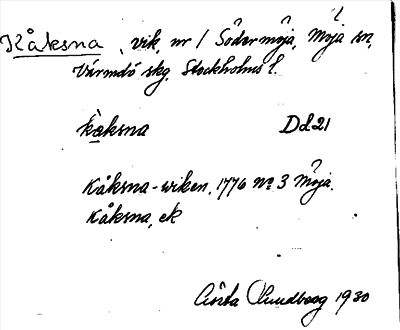 Kåksna, vik, nr 1 Södermöja, Möja sn,
Värmdö skg. Stockholms l.
kåksna Dd21
Kåksna-wiken, 1776 No 3 Möja.
Kåksna, ek
Lundberg 1930